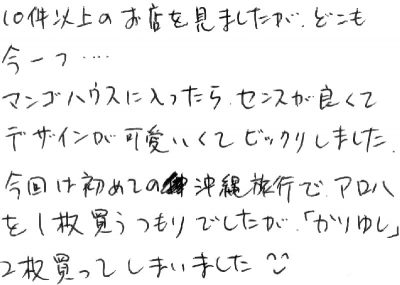 10件以上のお店を見ましたが、どこも
今一つ‥‥
マンゴハウスに入ったら、センスが良くて
デザインが可愛いくてビックリしました。
今回は初めての沖縄旅行で、アロハ
を1枚買うつもりでしたが、「かりゆし」
2枚買ってしまいました